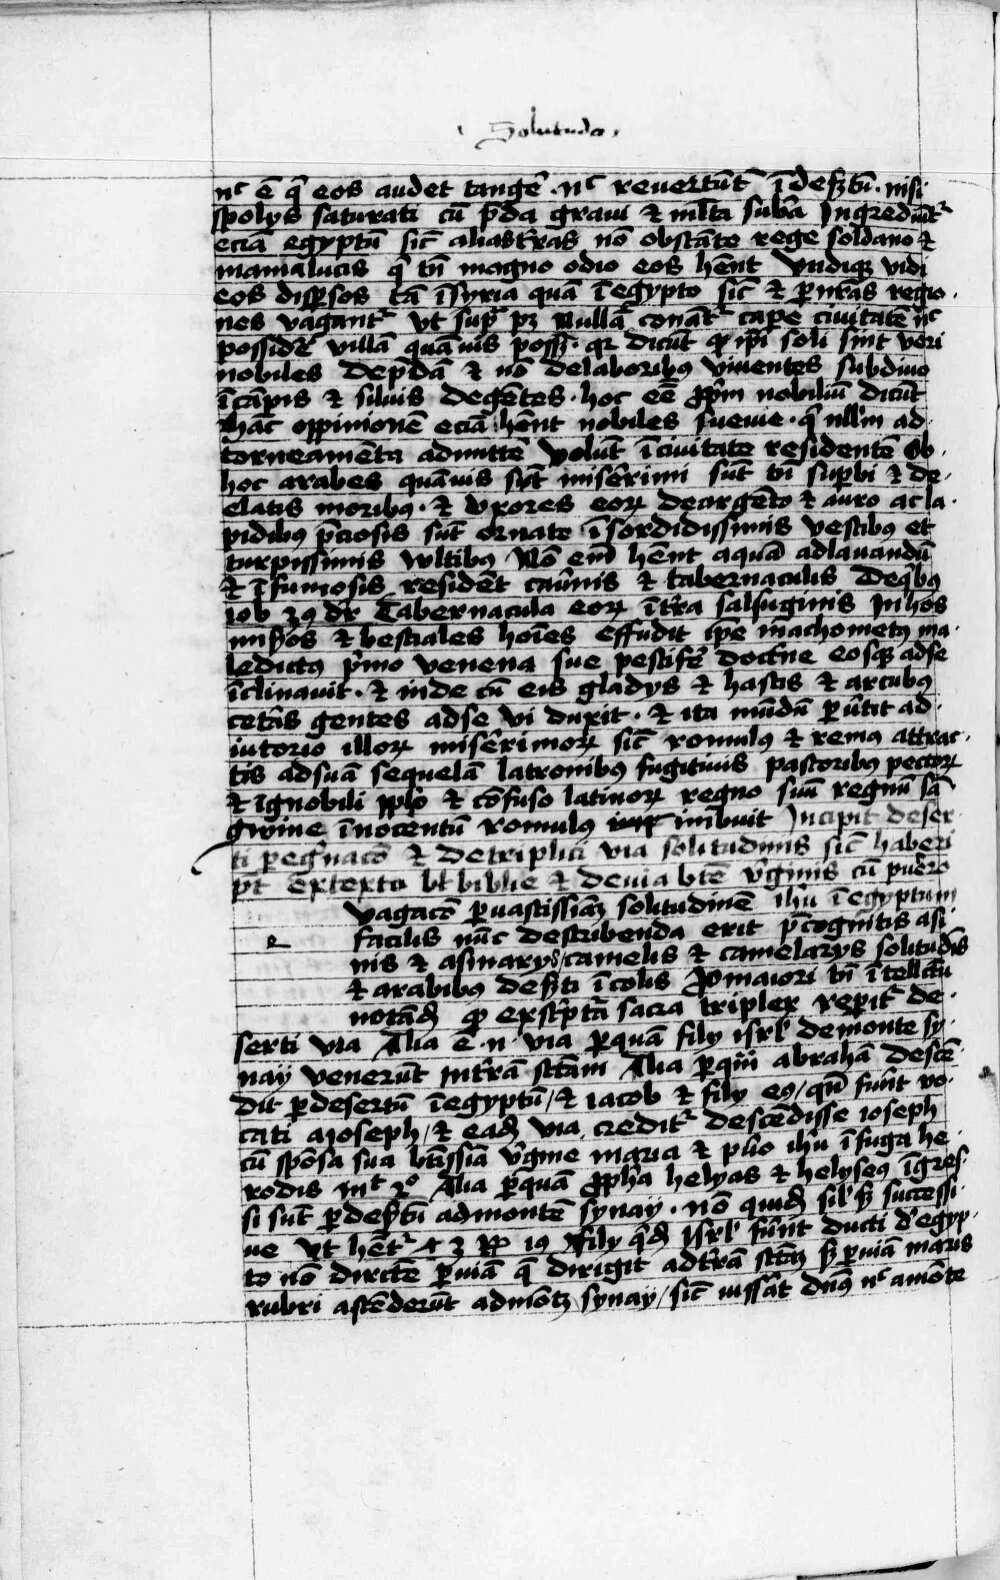 Solitudo
nc̄ ē q̄ eos audet tangē. nc̄ reuertūt ī desz̄tū. nisi
spolys saturati cū p̄da graui & ml̄ta subā Ingrediūt᷑
eciā egyptū sic̄ alias tr̄as nō obstāte rege soldano &
mamalucis q̄ tn̄ magno odio eos hēnt Vndiqꝫ vidi
eos disp̄sos tā ī syria quā ī egypto sic̄ & p nr̄as regio-
nes vagant᷑ vt sup̄ pꝫ Nullā conāt᷑ cape ciuitatē nc̄
possidē villā quāuis possꝫ. qr dicūt ꝙ ip̄i soli sint veri
nobiles de p̄da & nō de laboribꝰ viuentes sub diuo
ī cāpis & siluis degētes. hoc eē ꝓp̄m nobiliū dicūt
Hāc oppinionē eciā hēnt nobiles sueuie. q̄ nll̄m ad
torneamēta admittē Volūt ī ciuitate residentē Ob
hoc arabes quāuis sīnt misērimi sūt tn̄ sup̄bi & de
elatis moribꝰ. & vxores eoꝝ de argēto & auro ac la-
pidibꝰ p̄ciosis sūt ornate ī sordidissimis vestibꝰ et
turpissimis wltibꝰ Nō em̄ hēnt aquā ad lauandū
& ī fumosis residēt cau̇nis & tabernaculis De qͥbꝰ
iob 39 dr̄ Tabernacula eoꝝ ī tr̄a salsuginis In hos
mis̄os & bestiales hoīes effudit ip̄e māchometꝰ ma-
ledictꝰ p̄mo venena sue pestifē doct̄ne eosqꝫ ad se
īclinauit. & inde cū eis gladys & hastis & arcubꝰ
cetās gentes ad se vi duxit. & ita mūdū p̄uītit ad-
iutorio illoꝝ misērimoꝝ sic̄ romulꝰ & remꝰ attrac-
tis ad suā sequelā latronibꝰ fugitiuis pastoribꝰ pecoꝝ
& ignobili pp̄lo & cōfuso latinoꝝ regno suū regnū sā
gwine īnocentū romulꝰ imbuit Incipit deser
ti peg̓nacō & de triplici via solitudinis sic̄ haberi
p̄t ex textu bl̄ biblie & de via btē v̓ginis cū puero
Vagacō p vastissimā solitudinē ih̄u ī egyptum
facilis nūc describenda erit p̄cognitis asi
nis & asinarys/ camelis & camelarys solitudīs
& arabibꝰ desz̄ti īcolis Pro maiori tn̄ ītellc̄tu
notādū ꝙ ex sc̓ptā sacra triplex repit᷑ de-
serti via Alia ē .n. via p quā fily isrl̄ de monte sy-
nay venerūt in tr̄am sct̄am Alia p quā abrahā descē-
dit p desertū ī egyptū/ & iacob & fily eꝰ/ quū fūnt vo-
cati a ioseph/ & eadē via credit᷑ descēdisse ioseph
cū spōsa sua bt̄issiā v̓gine maria & pūo ih̄u ī fuga he
rodis mt̄ 2º Alia p quā ꝓph̄a helyas & helyseꝰ īgres-
si sūt p desz̄tū ad montē synay. nō quidē sil̄ sꝫ successi-
ue vt hēt᷑ 4 3 Rꝝ 19 Fily q̄dē Isrl̄ fūnt ducti d̓ egyp-
to nō directe p viā q̄ dirigit ad tr̄ā sctāꝫ sꝫ p viā maris
rubri ascēderūt ad mōtꝫ synay/ sic̄ iussāt dn̄s nc̄ a mōte